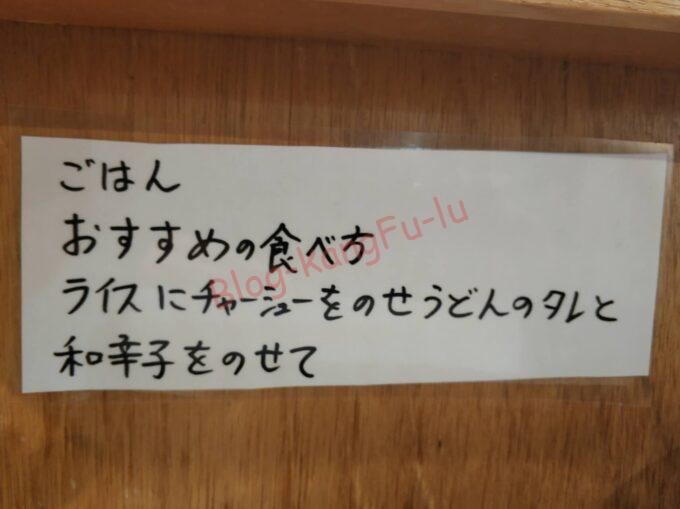 ごはん
おすすめの食べ方
ライスにチャーシューをのせうどんのタレと
和辛子をのせて
Blog-kangFu-lu